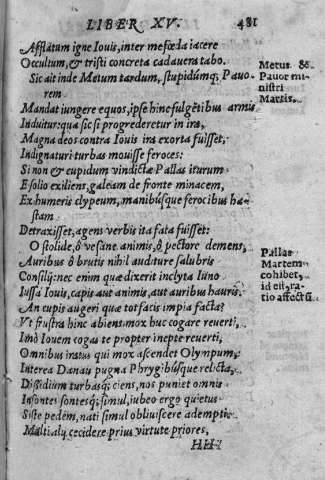 LIBER XV. 481
Afflātum igne Iouis, inter mefœda iacere
Occultum, & tristi concreta cadauera tabo.
Sic ait inde Metum tardum, stupidúmq; Pauo-
rem
Mandat iungere equos, ipse hinc fulgētibus armis
Induitur: qua sic si progrederetur in ira,
Magna deos contra Iouis ira exorta fuisset,
Indignaturi turbas mouisse feroces:
Si non & cupidum vindictæ Pallas iturum
E solio exiliens, galeam de fronte minacem,
Ex humeris clypeum, manibúsque ferocibus ha-
stam
Detraxisset, agens verbis ita fata fuisset:
O stolide, ô vesane animis, ô pectore demens,
Auribus ô brutis nihil auditure salubris
Consilij: nec enim quæ dixerit inclyta Iuno
Iussa Iouis, capis aut animis, aut auribus hauris.
An cupis augeri quæ tot facis impia facta?
Vt frustra hinc abiens mox huc cogare reuerti,
Imò Iouem cogas te propter inepte reuerti,
Omnibus iratus qui mox ascendet Olympum,
Interea Danaū pugna Phrygibúsque relicta,
Dissidium turbasq; ciens, nos puniet omnis
Insontes sontesq; simul, iubeo ergo quietus
Siste pedem, nati simul obliuiscere adempti:
Multi alij cecidere prius virtute priores,
HHi
Metus &
Pauor mi
nistri
Martis.
Pallas
Martem
cohibet,
id est, ra-
tio affectū